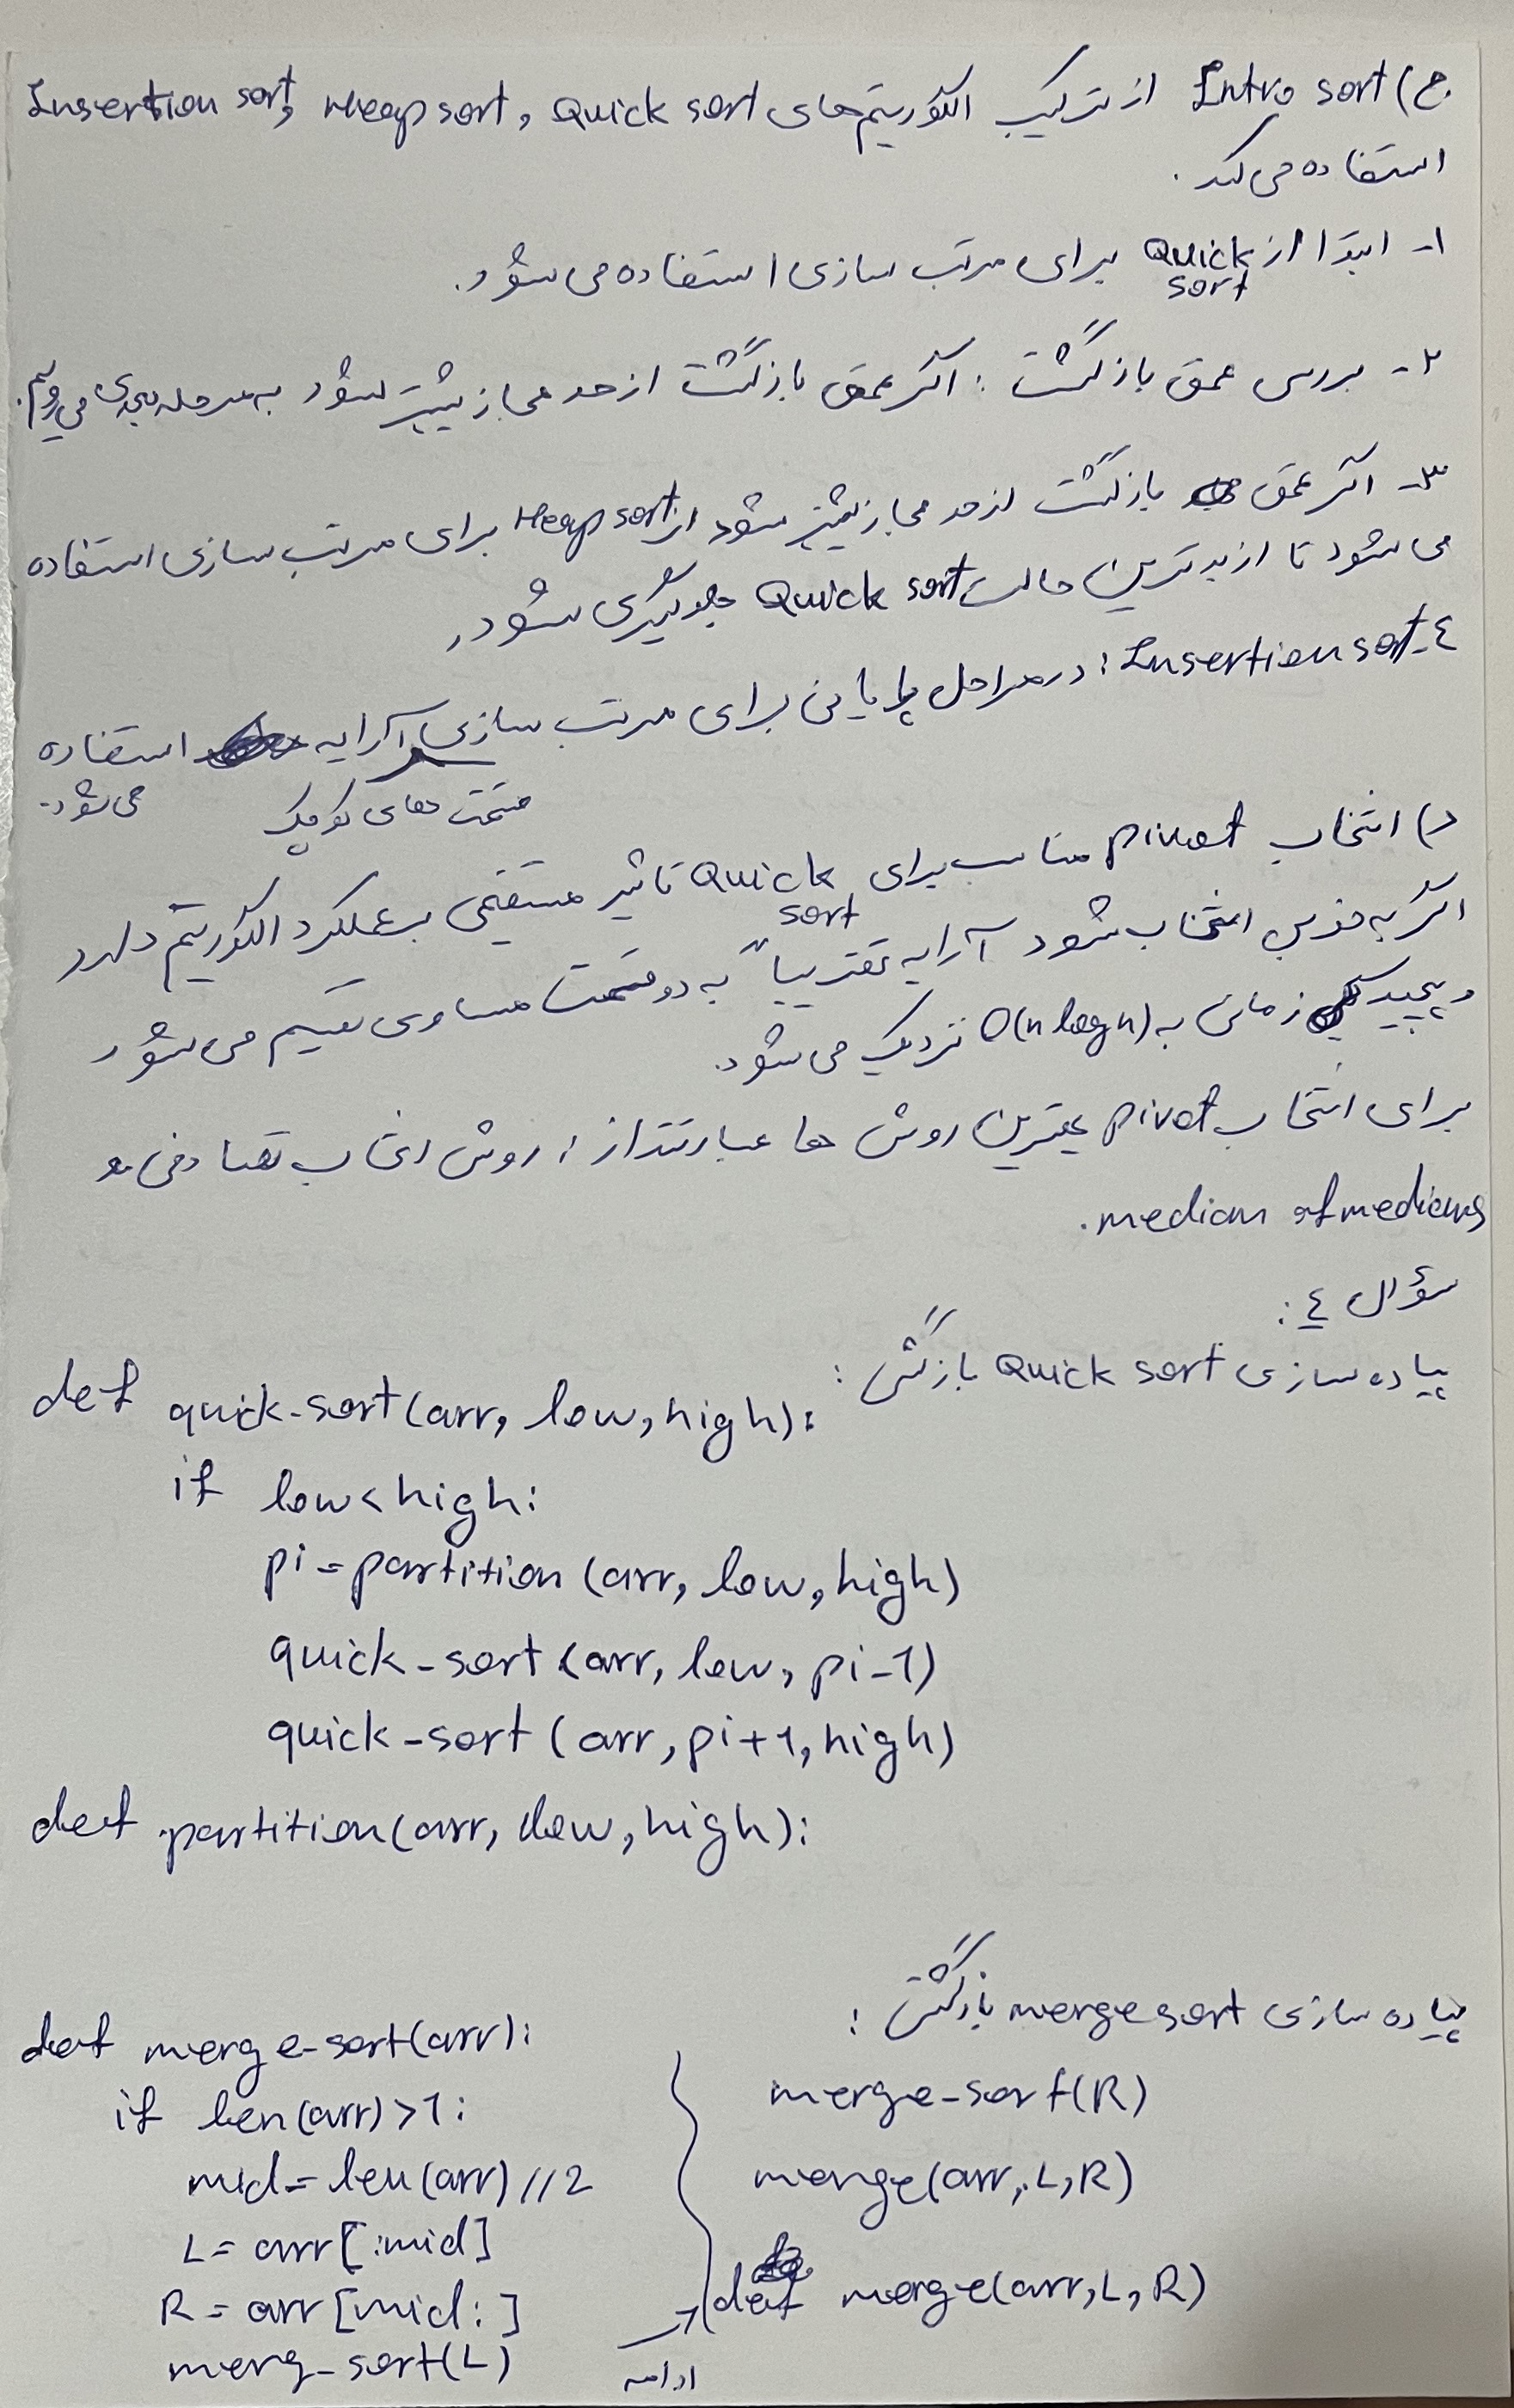 ج) Intro sort از ترکیب الگوریتم‌های Quick sort, Heap sort, Insertion sort
استفاده می‌کند.
۱- ابتدا از Quick sort برای مرتب سازی استفاده می‌شود.
۲- بررسی عمق بازگشت: اگر عمق بازگشت از حد مجاز بیشتر شود به مرحله بعدی می‌رویم.
۳- اگر عمق بازگشت از حد مجاز بیشتر شود از Heap sort برای مرتب سازی استفاده
می‌شود تا از بدترین حالت Quick sort جلوگیری شود.
٤- Insertion sort: در مراحل پایانی برای مرتب سازی آرایه استفاده
قسمت‌های کوچک می‌شود.
د) انتخاب pivot مناسب برای Quick sort تاثیر مستقیمی بر عملکرد الگوریتم دارد
اگر به خوبی انتخاب شود آرایه تقریباً به دو قسمت مساوی تقسیم می‌شود
و پیچیدگی زمانی به O(n log n) نزدیک می‌شود.
برای انتخاب pivot بهترین روش ها عبارتند از: روش انتخاب تصادفی و
median of medians.
سؤال ٤:
پیاده سازی Quick sort بازگشتی:
def quick-sort(arr, low, high):
if low < high:
pi = partition (arr, low, high)
quick-sort (arr, low, pi-1)
quick-sort (arr, pi+1, high)
def partition(arr, low, high):
پیاده سازی merge sort بازگشتی:
def merge-sort(arr):
if len(arr) > 1:
mid = len(arr) // 2
L = arr[:mid]
R = arr[mid:]
merg-sort(L)
ادامه
merge-sort(R)
merge(arr, L, R)
def merge(arr, L, R)